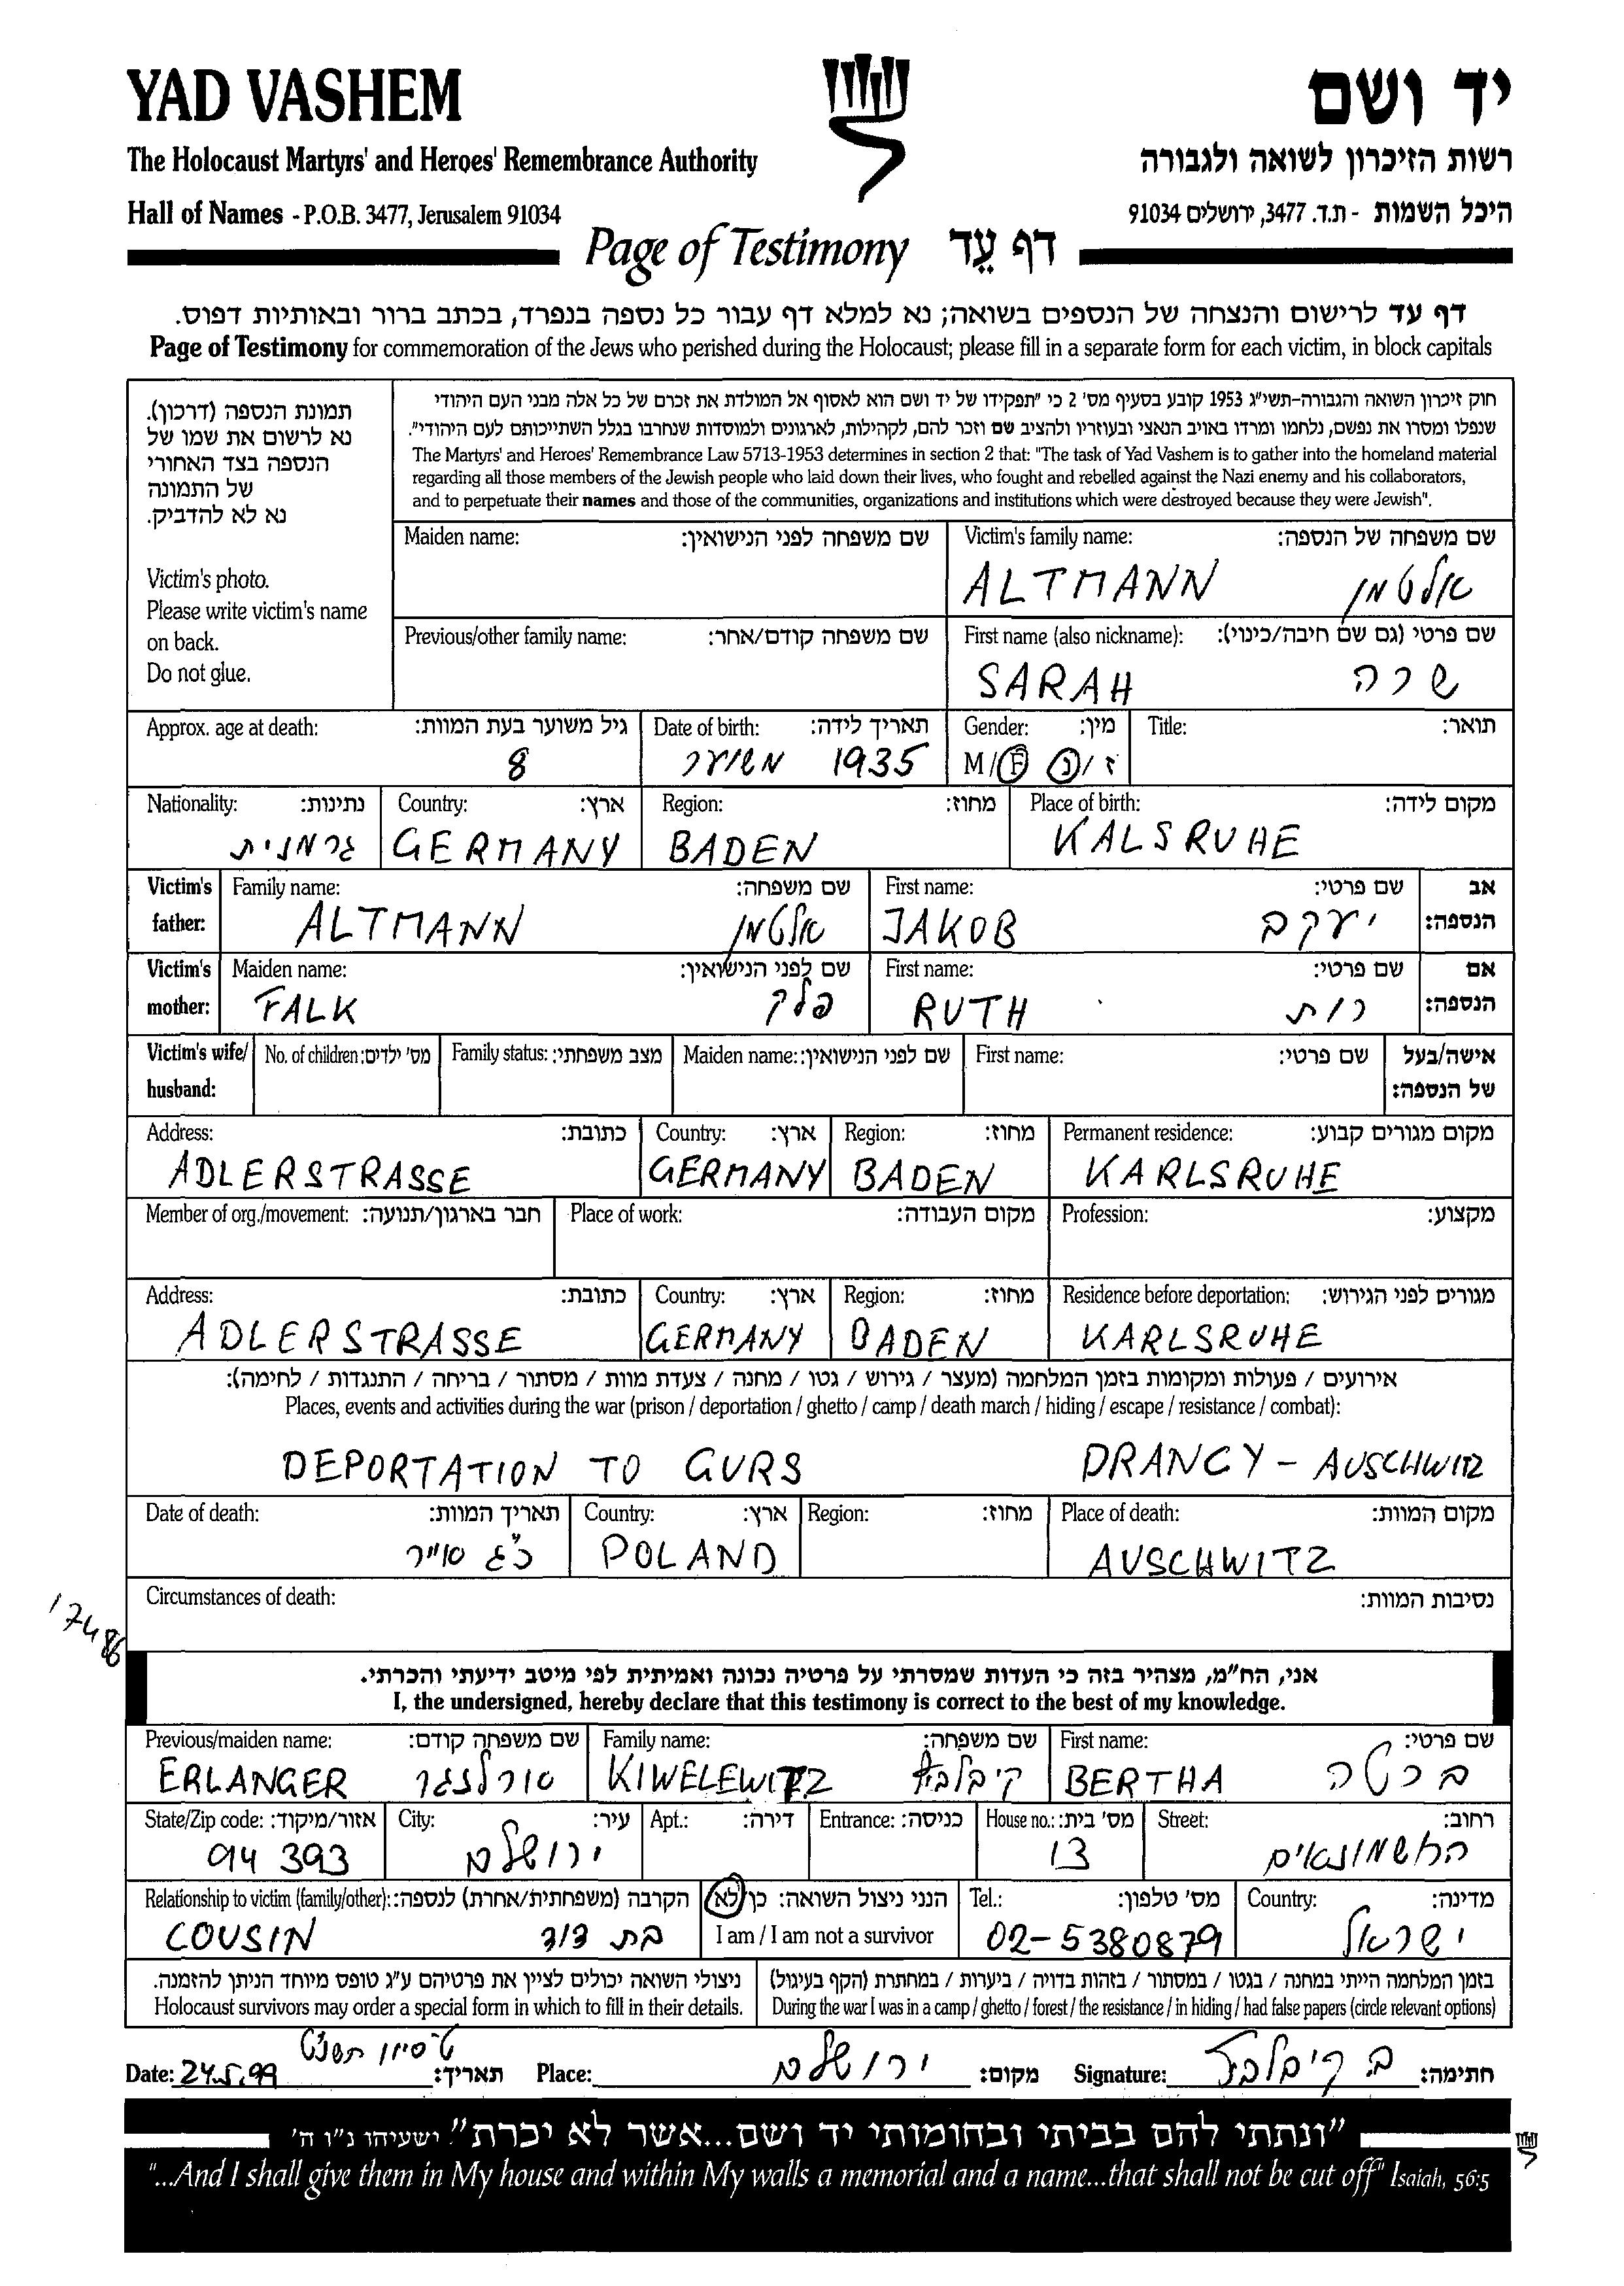 YAD VASHEM
יד ושם
The Holocaust Martyrs' and Heroes' Remembrance Authority
רשות הזיכרון לשואה ולגבורה
Hall of Names - P.O.B. 3477, Jerusalem 91034
היכל השמות - ת.ד. 3477, ירושלים 91034
Page of Testimony דף עֵד
דף עד לרישום והנצחה של הנספים בשואה; נא למלא דף עבור כל נספה בנפרד, בכתב ברור ובאותיות דפוס.
Page of Testimony for commemoration of the Jews who perished during the Holocaust; please fill in a separate form for each victim, in block capitals
תמונת הנספה (דרכון).
נא לרשום את שמו של
הנספה בצד האחורי
של התמונה
נא לא להדביק.
Victim's photo.
Please write victim's name
on back.
Do not glue.
חוק זיכרון השואה והגבורה-תשי"ג 1953 קובע בסעיף מס' 2 כי "תפקידו של יד ושם הוא לאסוף אל המולדת את זכרם של כל אלה מבני העם היהודי
שנפלו ומסרו את נפשם, נלחמו ומרדו באויב הנאצי ובעוזריו ולהציב שם וזכר להם, לקהילות, לארגונים ולמוסדות שנחרבו בגלל השתייכותם לעם היהודי".
The Martyrs' and Heroes' Remembrance Law 5713-1953 determines in section 2 that: "The task of Yad Vashem is to gather into the homeland material
regarding all those members of the Jewish people who laid down their lives, who fought and rebelled against the Nazi enemy and his collaborators,
and to perpetuate their names and those of the communities, organizations and institutions which were destroyed because they were Jewish".
Maiden name: שם משפחה לפני הנישואין: Victim's family name: שם משפחה של הנספה:
ALTMANN אלטמן
Previous/other family name: שם משפחה קודם/אחר: First name (also nickname): שם פרטי (גם שם חיבה/כינוי):
SARAH שרה
Approx. age at death: גיל משוער בעת המוות: Date of birth: תאריך לידה: Gender: מין: Title: תואר:
8 משוער 1935 M/F ז/נ
Nationality: נתינות: Country: ארץ: Region: מחוז: Place of birth: מקום לידה:
גרמנית GERMANY BADEN KALSRUHE
Victim's father: Family name: שם משפחה: First name: שם פרטי: אב הנספה:
ALTMANN אלטמן JAKOB יעקב
Victim's mother: Maiden name: שם לפני הנישואין: First name: שם פרטי: אם הנספה:
FALK פלק RUTH רות
Victim's wife/ husband: No. of children: מס' ילדים: Family status: מצב משפחתי: Maiden name: שם לפני הנישואין: First name: שם פרטי: אישה/בעל של הנספה:
Address: כתובת: Country: ארץ: Region: מחוז: Permanent residence: מקום מגורים קבוע:
ADLERSTRASSE GERMANY BADEN KARLSRUHE
Member of org./movement: חבר בארגון/תנועה: Place of work: מקום העבודה: Profession: מקצוע:
Address: כתובת: Country: ארץ: Region: מחוז: Residence before deportation: מגורים לפני הגירוש:
ADLERSTRASSE GERMANY BADEN KARLSRUHE
אירועים / פעולות ומקומות בזמן המלחמה (מעצר / גירוש / גטו / מחנה / צעדת מוות / מסתור / בריחה / התנגדות / לחימה):
Places, events and activities during the war (prison / deportation / ghetto / camp / death march / hiding / escape / resistance / combat):
DEPORTATION TO GURS DRANCY - AUSCHWITZ
Date of death: תאריך המוות: Country: ארץ: Region: מחוז: Place of death: מקום המוות:
POLAND AUSCHWITZ
Circumstances of death: נסיבות המוות:
17486
אני, הח"מ, מצהיר בזה כי העדות שמסרתי על פרטיה נכונה ואמיתית לפי מיטב ידיעתי והכרתי.
I, the undersigned, hereby declare that this testimony is correct to the best of my knowledge.
Previous/maiden name: שם משפחה קודם: Family name: שם משפחה: First name: שם פרטי:
ERLANGER ארלנגר KIWELEWITZ BERTHA ברטה
State/Zip code: אזור/מיקוד: City: עיר: Apt.: דירה: Entrance: כניסה: House no.: מס' בית: Street: רחוב:
94 393 ירושלם 13 החשמונאים
Relationship to victim (family/other): הקרבה (משפחתית/אחרת) לנספה: הנני ניצול השואה: כן לא Tel.: מס' טלפון: Country: מדינה:
COUSIN בת דוד I am / I am not a survivor 02-5380879 ישראל
ניצולי השואה יכולים לציין את פרטיהם ע"ג טופס מיוחד הניתן להזמנה.
Holocaust survivors may order a special form in which to fill in their details.
בזמן המלחמה הייתי במחנה / בגטו / במסתור / בזהות בדויה / ביערות / במחתרת (הקף בעיגול)
During the war I was in a camp / ghetto / forest / the resistance / in hiding / had false papers (circle relevant options)
ט' סיון תשנ"ט
Date: 24.5.99 תאריך: Place: ירושלם מקום: Signature: חתימה:
"ונתתי להם בביתי ובחומותי יד ושם...אשר לא יכרת". ישעיהו נ"ו ה'
"...And I shall give them in My house and within My walls a memorial and a name...that shall not be cut off" Isaiah, 56:5